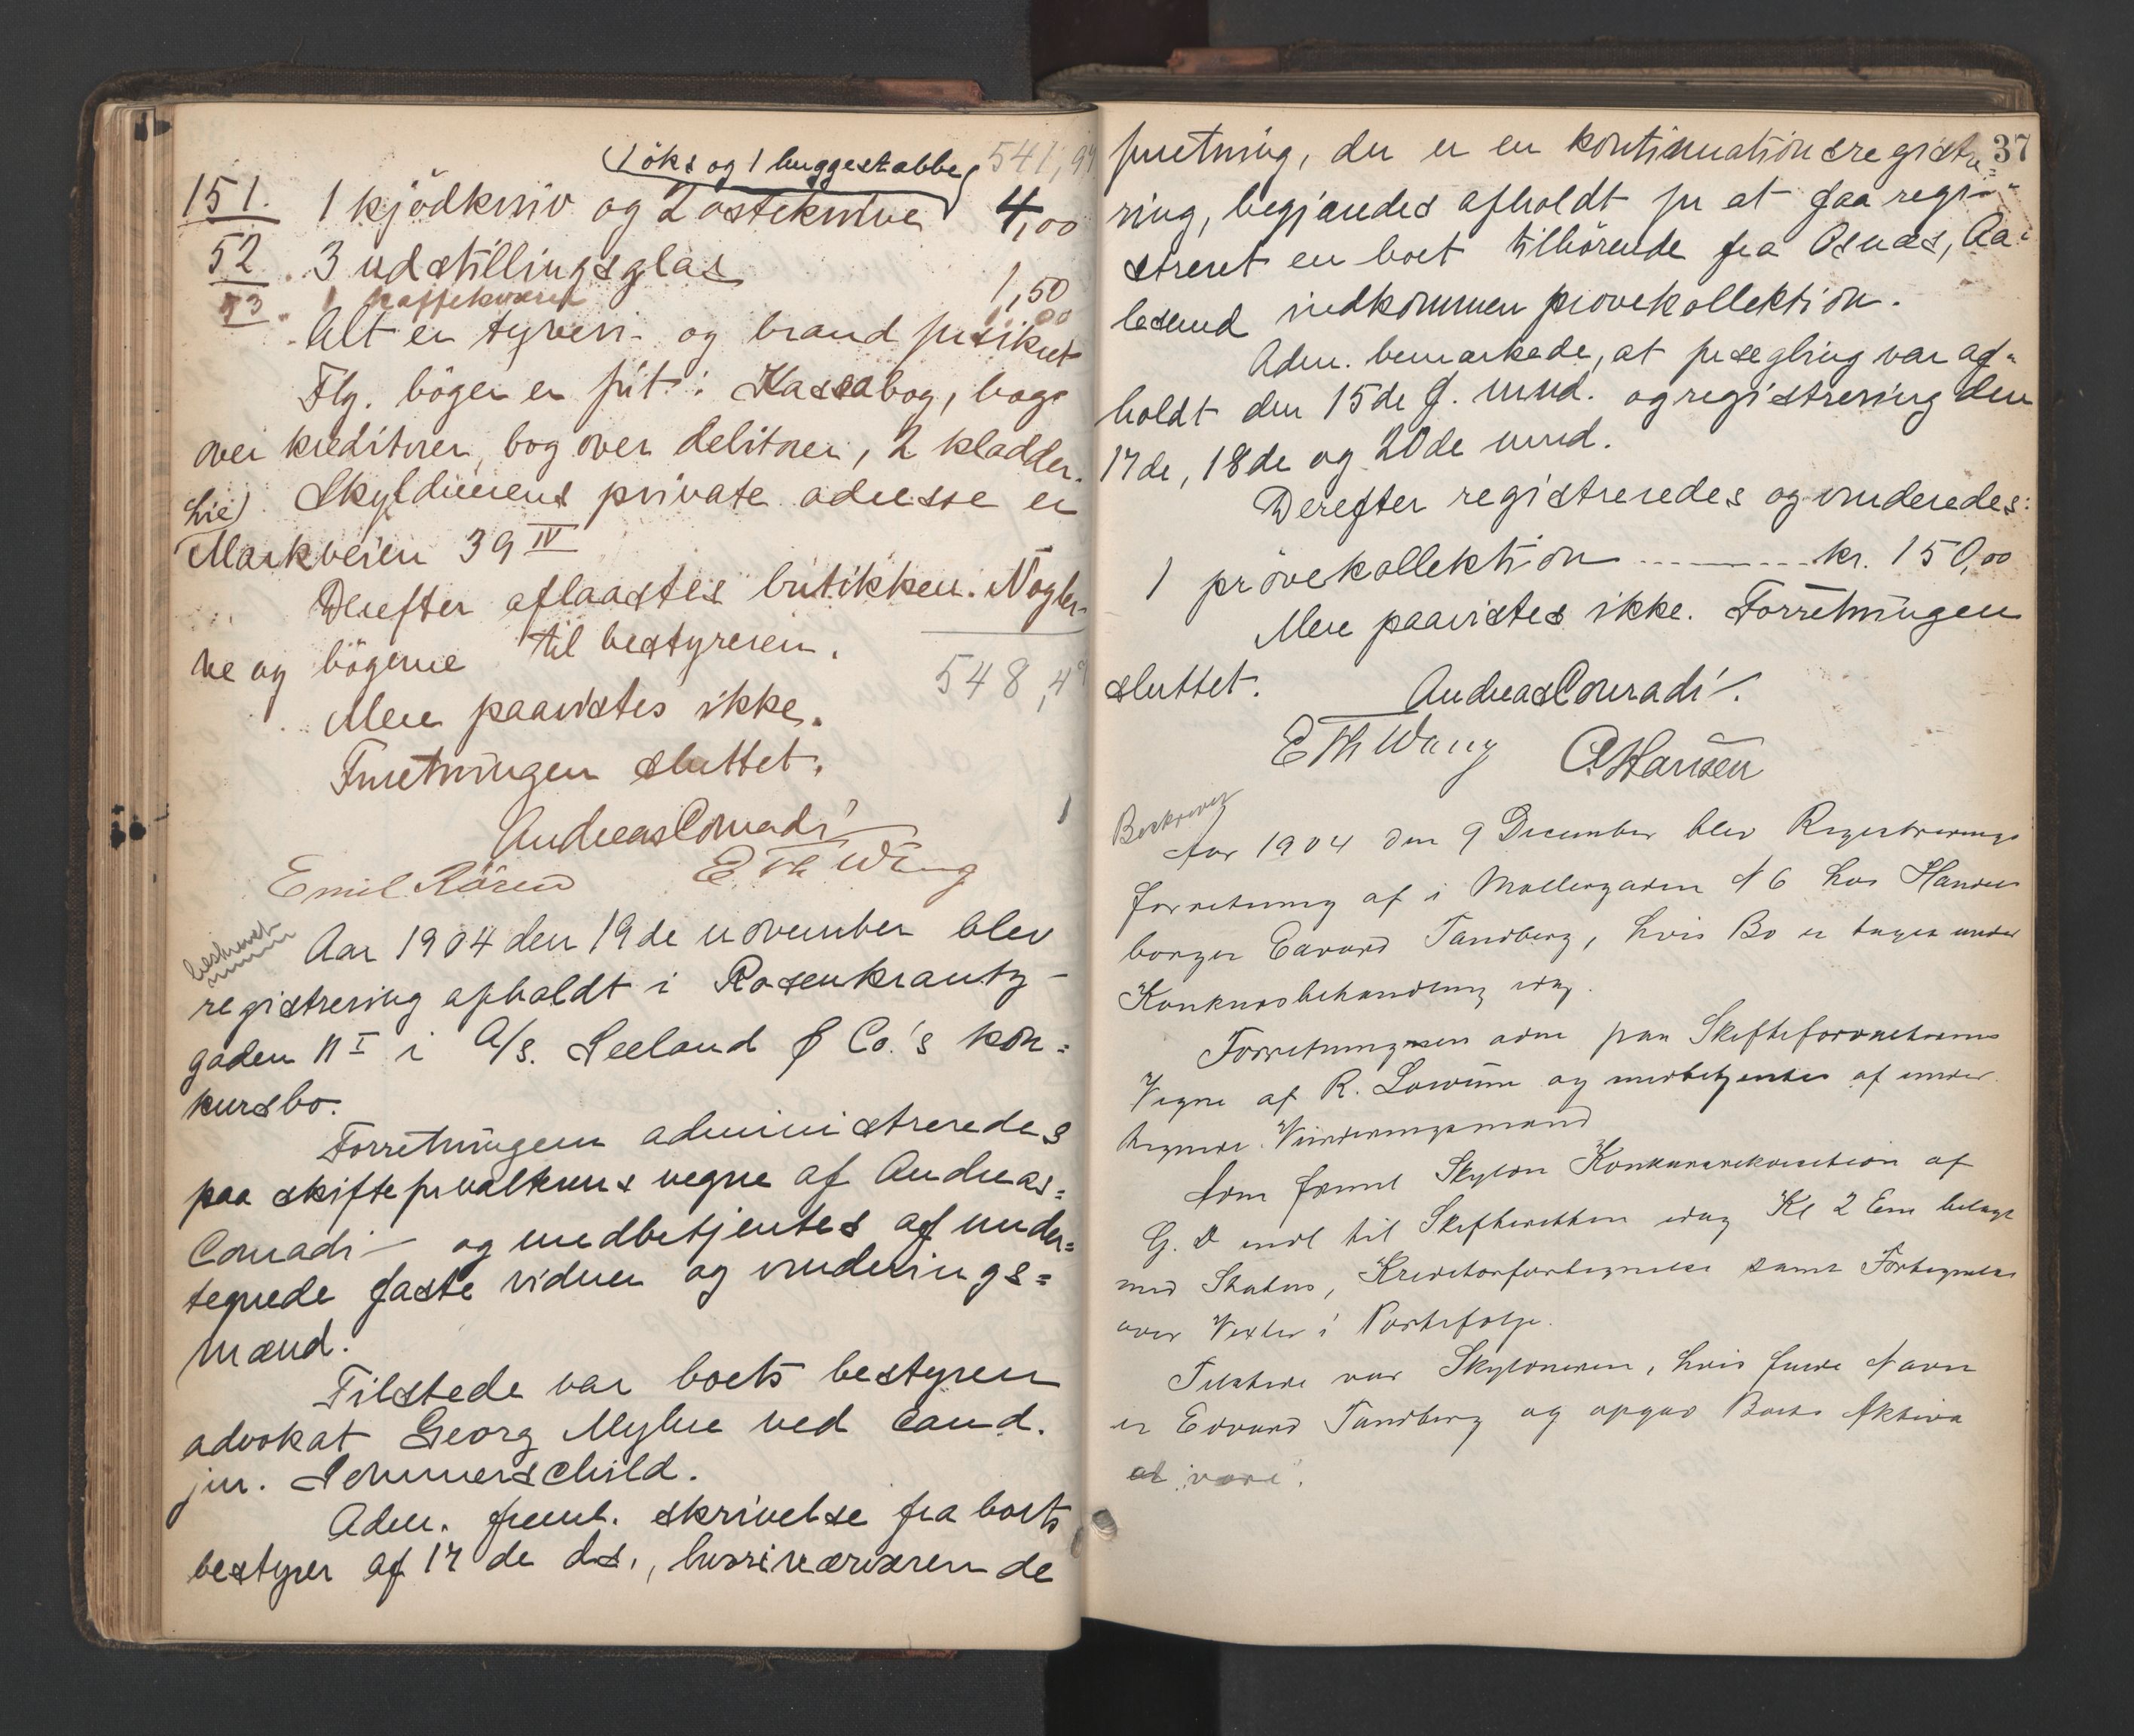 1 öks og 1 huggestabbe 541,99
151. 1 kjödkniv og 2 osteknive 4,00
52 3 udstillingsglas 1,50
53 1 kaffekværn
Alt er tyveri- og brand frsikret
Flg. böger er frt: Kassabog, bog
over kreditorer, bog over debitorer, 2 kladder.
Skyldnerens private adresse er
Markveien 39 IV
Derefter aflaastes butikken. Nögler-
ne og bögerne til bestyreren.
548,49
Mere paavistes ikke.
Frretningen sluttet.
Andreas Conradi
Emil Rören E Th Wang
beskrevet
Aar 1904 den 19de november blev
registrering afholdt i Rosenkrantz-
gaden 11 I i A/S. Seeland & Co.'s kon=
kursbo.
Forretningen administreredes
paa skiftefrvalterens vegne af Andreas=
Conradi og medbetjentes af under=
tegnede faste vidner og vurderings=
mænd.
Tilstede var boets bestyrer
advokat Georg Myhre ved cand.
jur. Sommerschild.
Adm. freml. skrivelse fra boets
bestyrer af 17de ds., hvori nærværende
37
frretning, der er en kontinuationsregistre=
ring, begjæredes afholdt fr at faa regi-
streret en boet tilhörende fra Osnæs, Aa=
lesund indkommen prövekollektion.
Adm. bemærkede, at frsegling var af=
holdt den 15de f. mnd. og registrering den
17de, 18de og 20de mnd.
Derefter registreredes og vurderedes:
1 prövekollektion kr. 150,00
Mere paavistes ikke. Forretningen
sluttet.
Andreas Conradi
E Th Wang A Hansen
Beskrevet
Aar 1904 den 9 December blev Registrerings
forretning af i Møllergaden N 6 hos Handels
borger Edvard Tandberg, hvis Bo er tagen under
Konkursbehandling idag.
Forretningen adm paa Skifteforvalterens
Vegne af R. og medbetjentes af under
tegnede Vurderingsmænd
Adm freml Skyldn Konkursrekvisition af
G. D indl til Skifteretten idag Kl 2 Em belagt
med Status, Kreditorfortegnelse samt Fortegnelse
over Vexler i Portefølje.
Tilstede var Skyldneren, hvis fulde Navn
er Edvard Tandberg og opgav Boets Aktiva
at være.